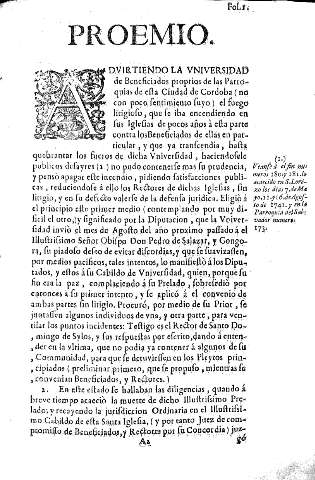 Fol. 1.
PROEMIO.
ADVIRTIENDO LA VNIVERSIDAD
de Beneficiados proprios de las Parro-
quias de esta Ciudad de Cordoba (no
con poco sentimiento suyo) el fuego
litigioso, que se iba encendiendo en
sus Iglesias de pocos años à esta parte
contra los Beneficiados de ellas en par-
ticular, y que ya transcendia, hasta
quebrantar los fueros de dicha Vniversidad, haciendosele
publicos desayres (1) no pudo contenerse mas su prudencia,
y penso apagar este incendio, pidiendo satisfacciones publi-
cas, reduciendose à ello los Rectores de dichas Iglesias, sin
litigio, y en su defecto valerse de la defensa juridica. Eligiò à
el principio este primer medio (contemplando por muy di-
ficil el otro,) y significado por la Diputacion, que la Vniver-
sidad invio el mes de Agosto del año proximo passado à el
Illustrissimo Señor Obispo Don Pedro de Salazar, y Gongo-
ra, su piadoso deseo de evitar discordias, y que se suavizassen,
por medios pacificos, tales intentos, lo manifestò à los Dipu-
tados, y estos à su Cabildo de Vniversidad, quien, porque su
fin era la paz, complaciendo à su Prelado, sobreseyò por
entonces à su primer intento, y se aplicò à el convenio de
ambas partes sin litigio. Procurò, por medio de su Prior, se
juntassen algunos individuos de vna, y otra parte, para ven-
tilar los puntos incidentes: Testigo es el Rector de Santo Do-
mingo de Sylos, y sus respuestas por escrito, dando à enten-
der en la vltima, que no podia ya contener à algunos de su
Communidad, para que se detuviessen en los Pleytos prin-
cipiados (preliminar primero, que se propuso, mientras se
convenian Beneficiados, y Rectores.)
2. En este estado se hallaban las diligencias, quando à
breve tiempo acaeciò la muerte de dicho Illustrissimo Pre-
lado, y recayendo la jurisdiccion Ordinaria en el Illustrissi-
mo Cabildo de esta Santa Iglesia, (y por tanto Juez de com-
promisso de Beneficiados, y Rectores por su Concordia) juz-
Aa
gò
(1.)